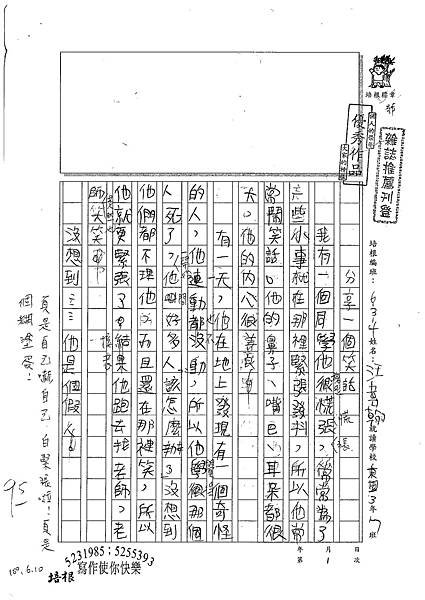 培根標章
國人的最佳
優秀作品
文章的特優
雜誌推薦刊登
培根編班：6314姓名：汪 就讀學校 東園3年7班
年 月 日
第 1 次
分享一個笑話
我有一個同學他很慌張，常常為了
這些小事就在那裡緊張發抖，所以他常
常鬧笑話。他的鼻子、嘴巴、耳朵都很
大，他的內心很善良。
有一天，他在地上發現有一個奇怪
的人，他連動都沒動，所以他覺得那個
人死了，他叫好多人該怎麼辦？沒想到
他們都不理他，而且還在那裡笑，所以
他就更緊張了。結果他跑去找老師，老
師笑笑的
沒想到……他是個假人！
真是自己嚇自己，自緊張啦！真是
個糊塗蛋！
95
109.6.10
培根
5231985；5255393
寫作使你快樂